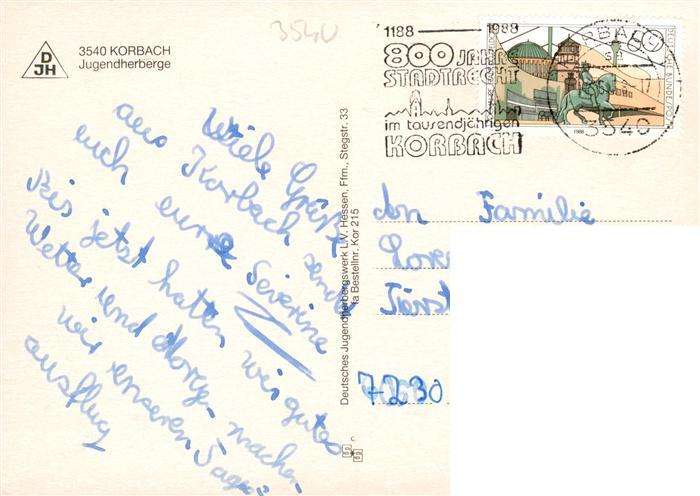 3540
3540 KORBACH
Jugendherberge
D
JH
1188 1988
800 JAHRE
STADTRECHT
im tausendjährigen
KORBACH
3540
1988
Viele Grüße
aus Korbach sendet
euch eure Severine
Bis jetzt hatten wir gutes
Wetter und Morgen machen
wir unseren Tages
ausflug
Deutsches Jugendherbergswerk L.V. Hessen, Ffm., Stegstr. 33
fa Bestellnr. Kor 215
An Familie
7230